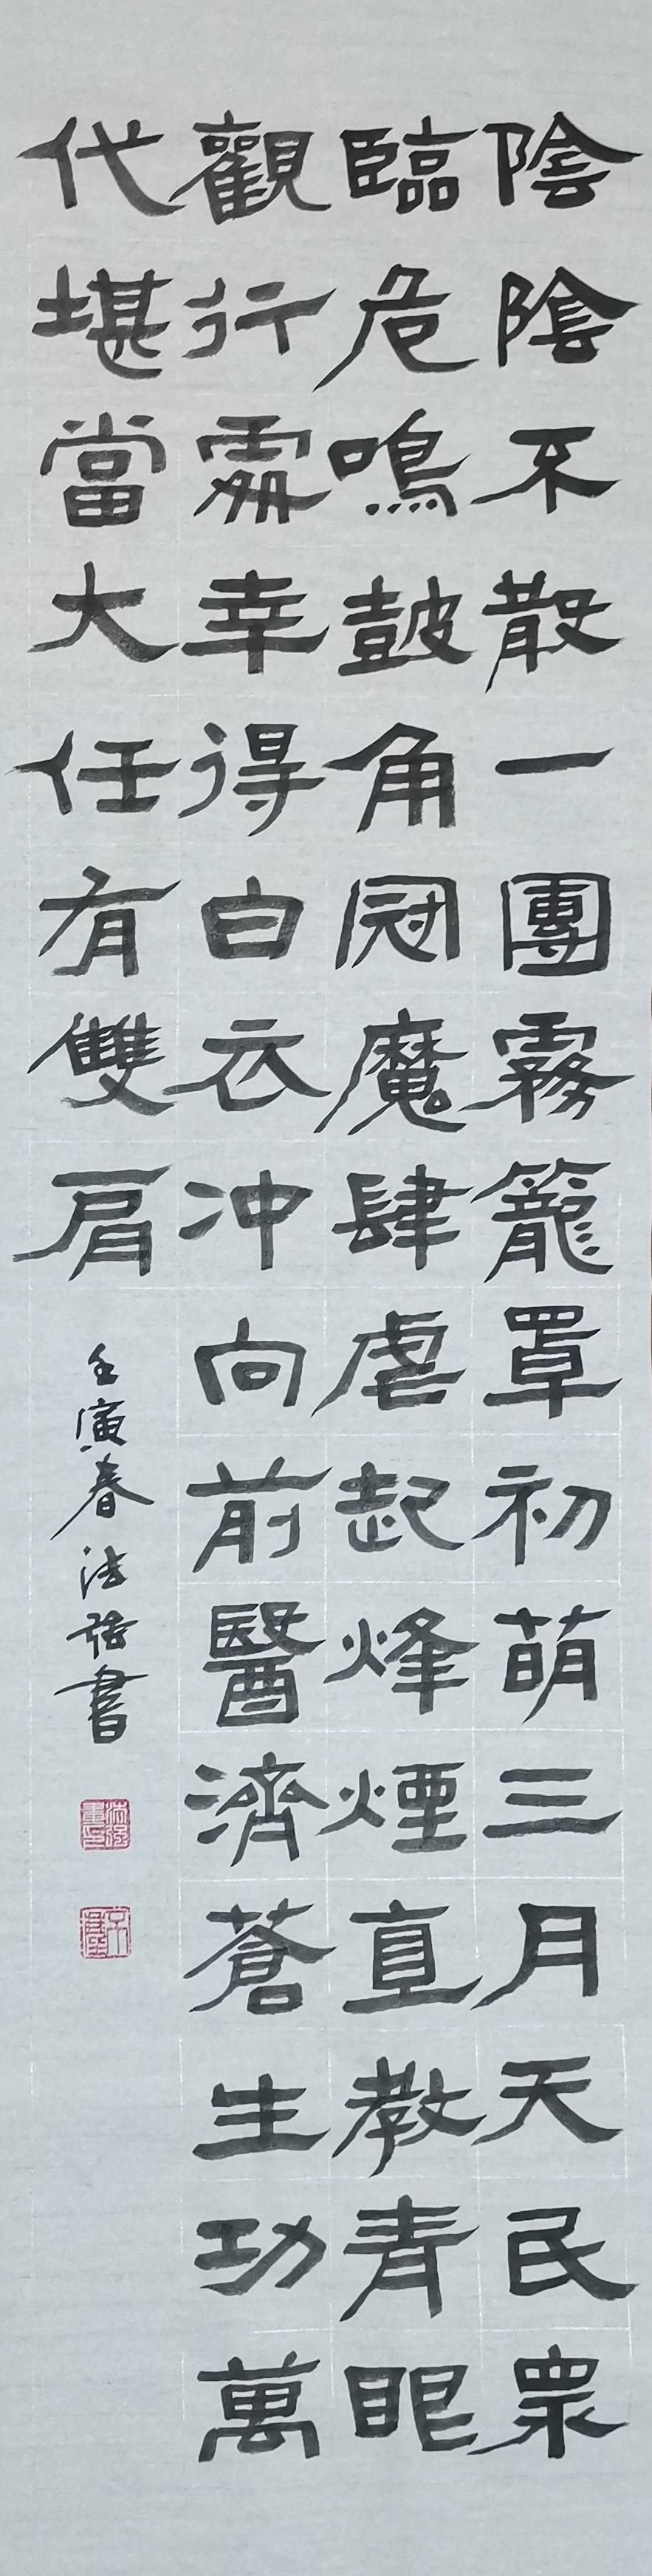 陰陰不散一團霧籠罩初萌三月天民眾
臨危鳴鼓角冠魔肆虐起烽煙直教青眼
觀行處幸得白衣冲向前醫濟蒼生功萬
代堪當大任有雙肩
壬寅春法強書